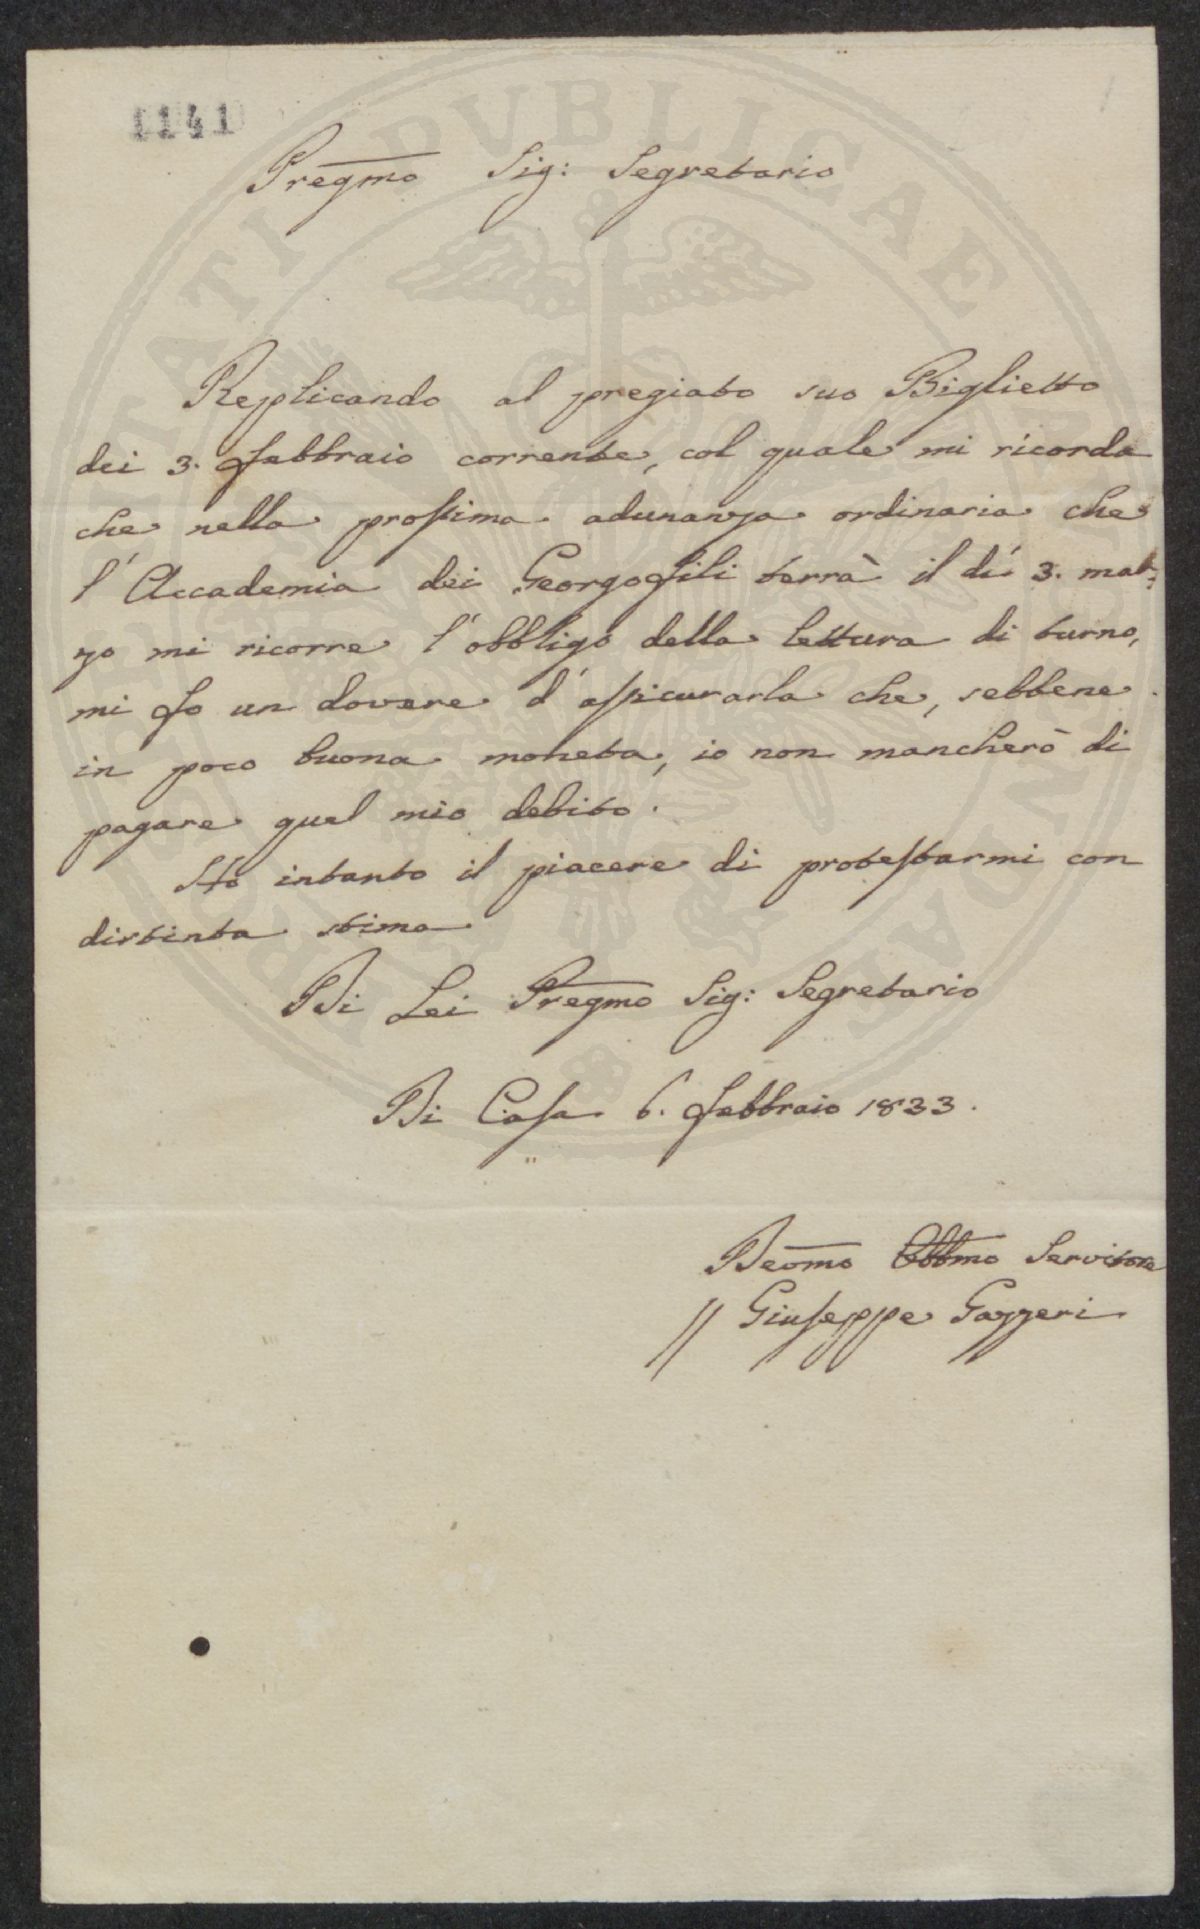 1141
Pregmo Sig: Segretario
Replicando al pregiato suo Biglietto
dei 3. febbraio corrente, col quale mi ricorda
che nella prossima adunanza ordinaria che
l'Accademia dei Georgofili terrà il dì 3. mar:
zo mi ricorre l'obbligo della lettura di turno,
mi fo un dovere d'assicurarla che, sebbene
in poco buona moneta, io non mancherò di
pagare quel mio debito.
Ho intanto il piacere di protestarmi con
distinta stima
Di Lei Pregmo Sig: Segretario
Di Casa 6. febbraio 1833.
Devmo Obbmo Servitore
Giuseppe Gazzeri
PVBLICAE